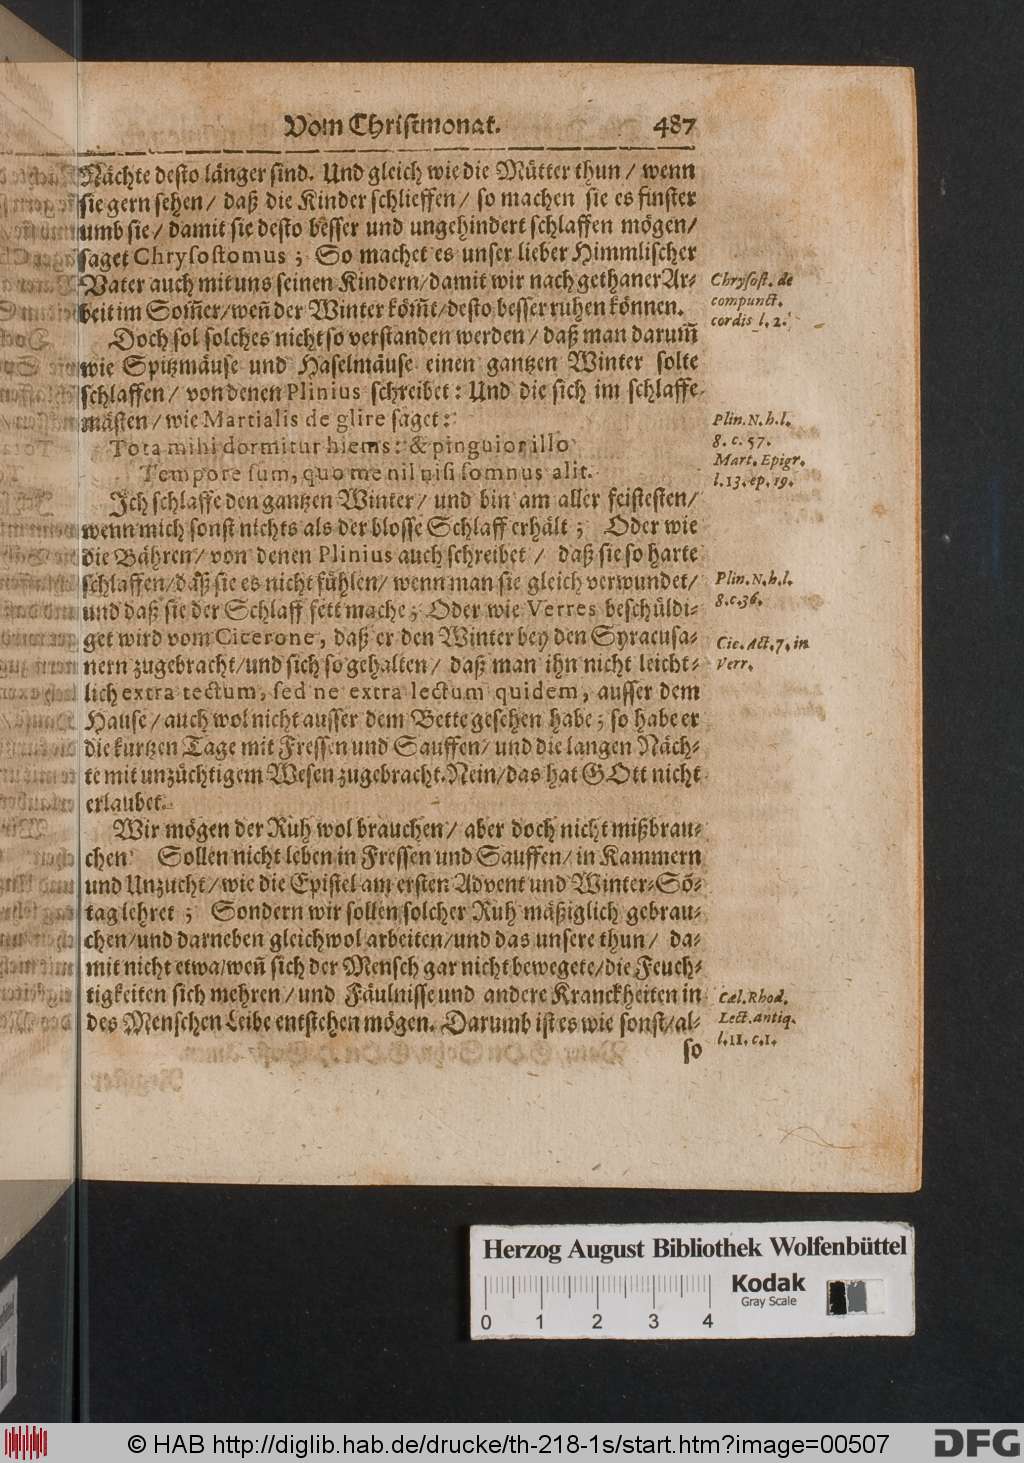 Vom Christmonat. 487
Nächte desto länger sind. Und gleich wie die Mütter thun / wenn
sie gern sehen / daß die Kinder schlieffen / so machen sie es finster
umb sie / damit sie desto besser und ungehindert schlaffen mögen /
saget Chrysostomus ; So machet es unser lieber Himmlischer
Vater auch mit uns seinen Kindern / damit wir nach gethaner Ar-
beit im Som̃er / weñ der Winter köm̃t / desto besser ruhen können.
Chrysost. de
compunct.
cordis l. 2.
Doch sol solches nicht so verstanden werden / daß man darum̃
wie Spitzmäuse und Haselmäuse einen gantzen Winter solte
schlaffen / von denen Plinius schreibet : Und die sich im schlaffe
mästen / wie Martialis de glire saget :
Tota mihi dormitur hiems : & pinguior illo
Tempore sum, quo me nil nisi somnus alit.
Plin. N. h. l.
8. c. 57.
Mart. Epigr.
l. 13. ep. 19.
Ich schlaffe den gantzen Winter / und bin am aller feistesten /
wenn mich sonst nichts als der blosse Schlaff erhält ; Oder wie
die Bähren / von denen Plinius auch schreibet / daß sie so harte
schlaffen / daß sie es nicht fühlen / wenn man sie gleich verwundet /
und daß sie der Schlaff fett mache ; Oder wie Verres beschüldi-
get wird vom Cicerone, daß er den Winter bey den Syracusa-
nern zugebracht / und sich so gehalten / daß man ihn nicht leicht-
lich extra tectum, sed ne extra lectum quidem, ausser dem
Hause / auch wol nicht ausser dem Bette gesehen habe ; so habe er
die kurtzen Tage mit Fressen und Sauffen / und die langen Näch-
te mit unzüchtigem Wesen zugebracht. Nein / das hat GOtt nicht
erlaubet.
Plin. N. h. l.
8. c. 36.
Cic. Act. 7. in
Verr.
Wir mögen der Ruh wol brauchen / aber doch nicht mißbrau-
chen Sollen nicht leben in Fressen und Sauffen / in Kammern
und Unzucht / wie die Epistel am ersten Advent und Winter-Sö-
tag lehret ; Sondern wir sollen solcher Ruh mäßiglich gebrau-
chen / und darneben gleichwol arbeiten / und das unsere thun / da-
mit nicht etwa / weñ sich der Mensch gar nicht bewegete / die Feuch-
tigkeiten sich mehren / und Fäulnisse und andere Kranckheiten in
des Menschen Leibe entstehen mögen. Darumb ist es wie sonst / al-
so
Cæl. Rhod.
Lect. antiq.
l. 11. c. 1.
Herzog August Bibliothek Wolfenbüttel
Kodak
Gray Scale
0 1 2 3 4
© HAB http://diglib.hab.de/drucke/th-218-1s/start.htm?image=00507
DFG